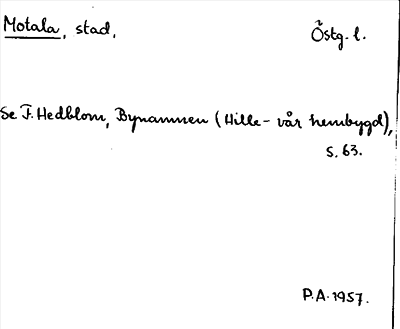 Motala, stad. Östg. l.
Se F. Hedblom, Bynamnen (Hille - vår hembygd),
s. 63.
P.A. 1957.